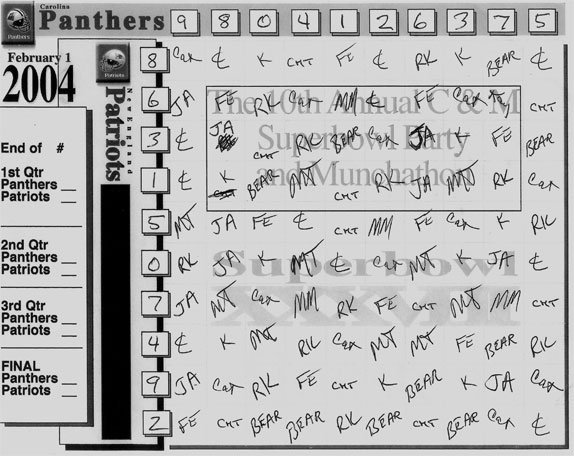 Carolina
Panthers 9 8 0 4 1 2 6 3 7 5
Panthers
February 1
2004
Patriots
New England
Patriots
The 10th Annual C & M
Superbowl Party
and Munchathon
Superbowl
XXXVIII
8 Cax ₵ K CMT FE ₵ RK K BEAR ₵
6 JA FE RK Cax MM ₵ FE Cax CMT
3 ₵ JA CMT RK BEAR Cax JA K FE BEAR
1 ₵ K BEAR MT CMT RK JA MT RK Cax
5 MT JA FE ₵ CMT MM FE Cax K RK
0 RK JA K MT ₵ Cax MT K JA ₵
7 JA MT Cax MM RK FE CMT MT MM CMT
4 ₵ K MT RK Cax MT MT FE BEAR RK
9 JA Cax RK FE CMT K BEAR K JA Cax
2 FE CMT BEAR BEAR RK BEAR CMT BEAR Cax ₵
End of #
1st Qtr
Panthers __
Patriots __
2nd Qtr
Panthers __
Patriots __
3rd Qtr
Panthers __
Patriots __
FINAL
Panthers __
Patriots __